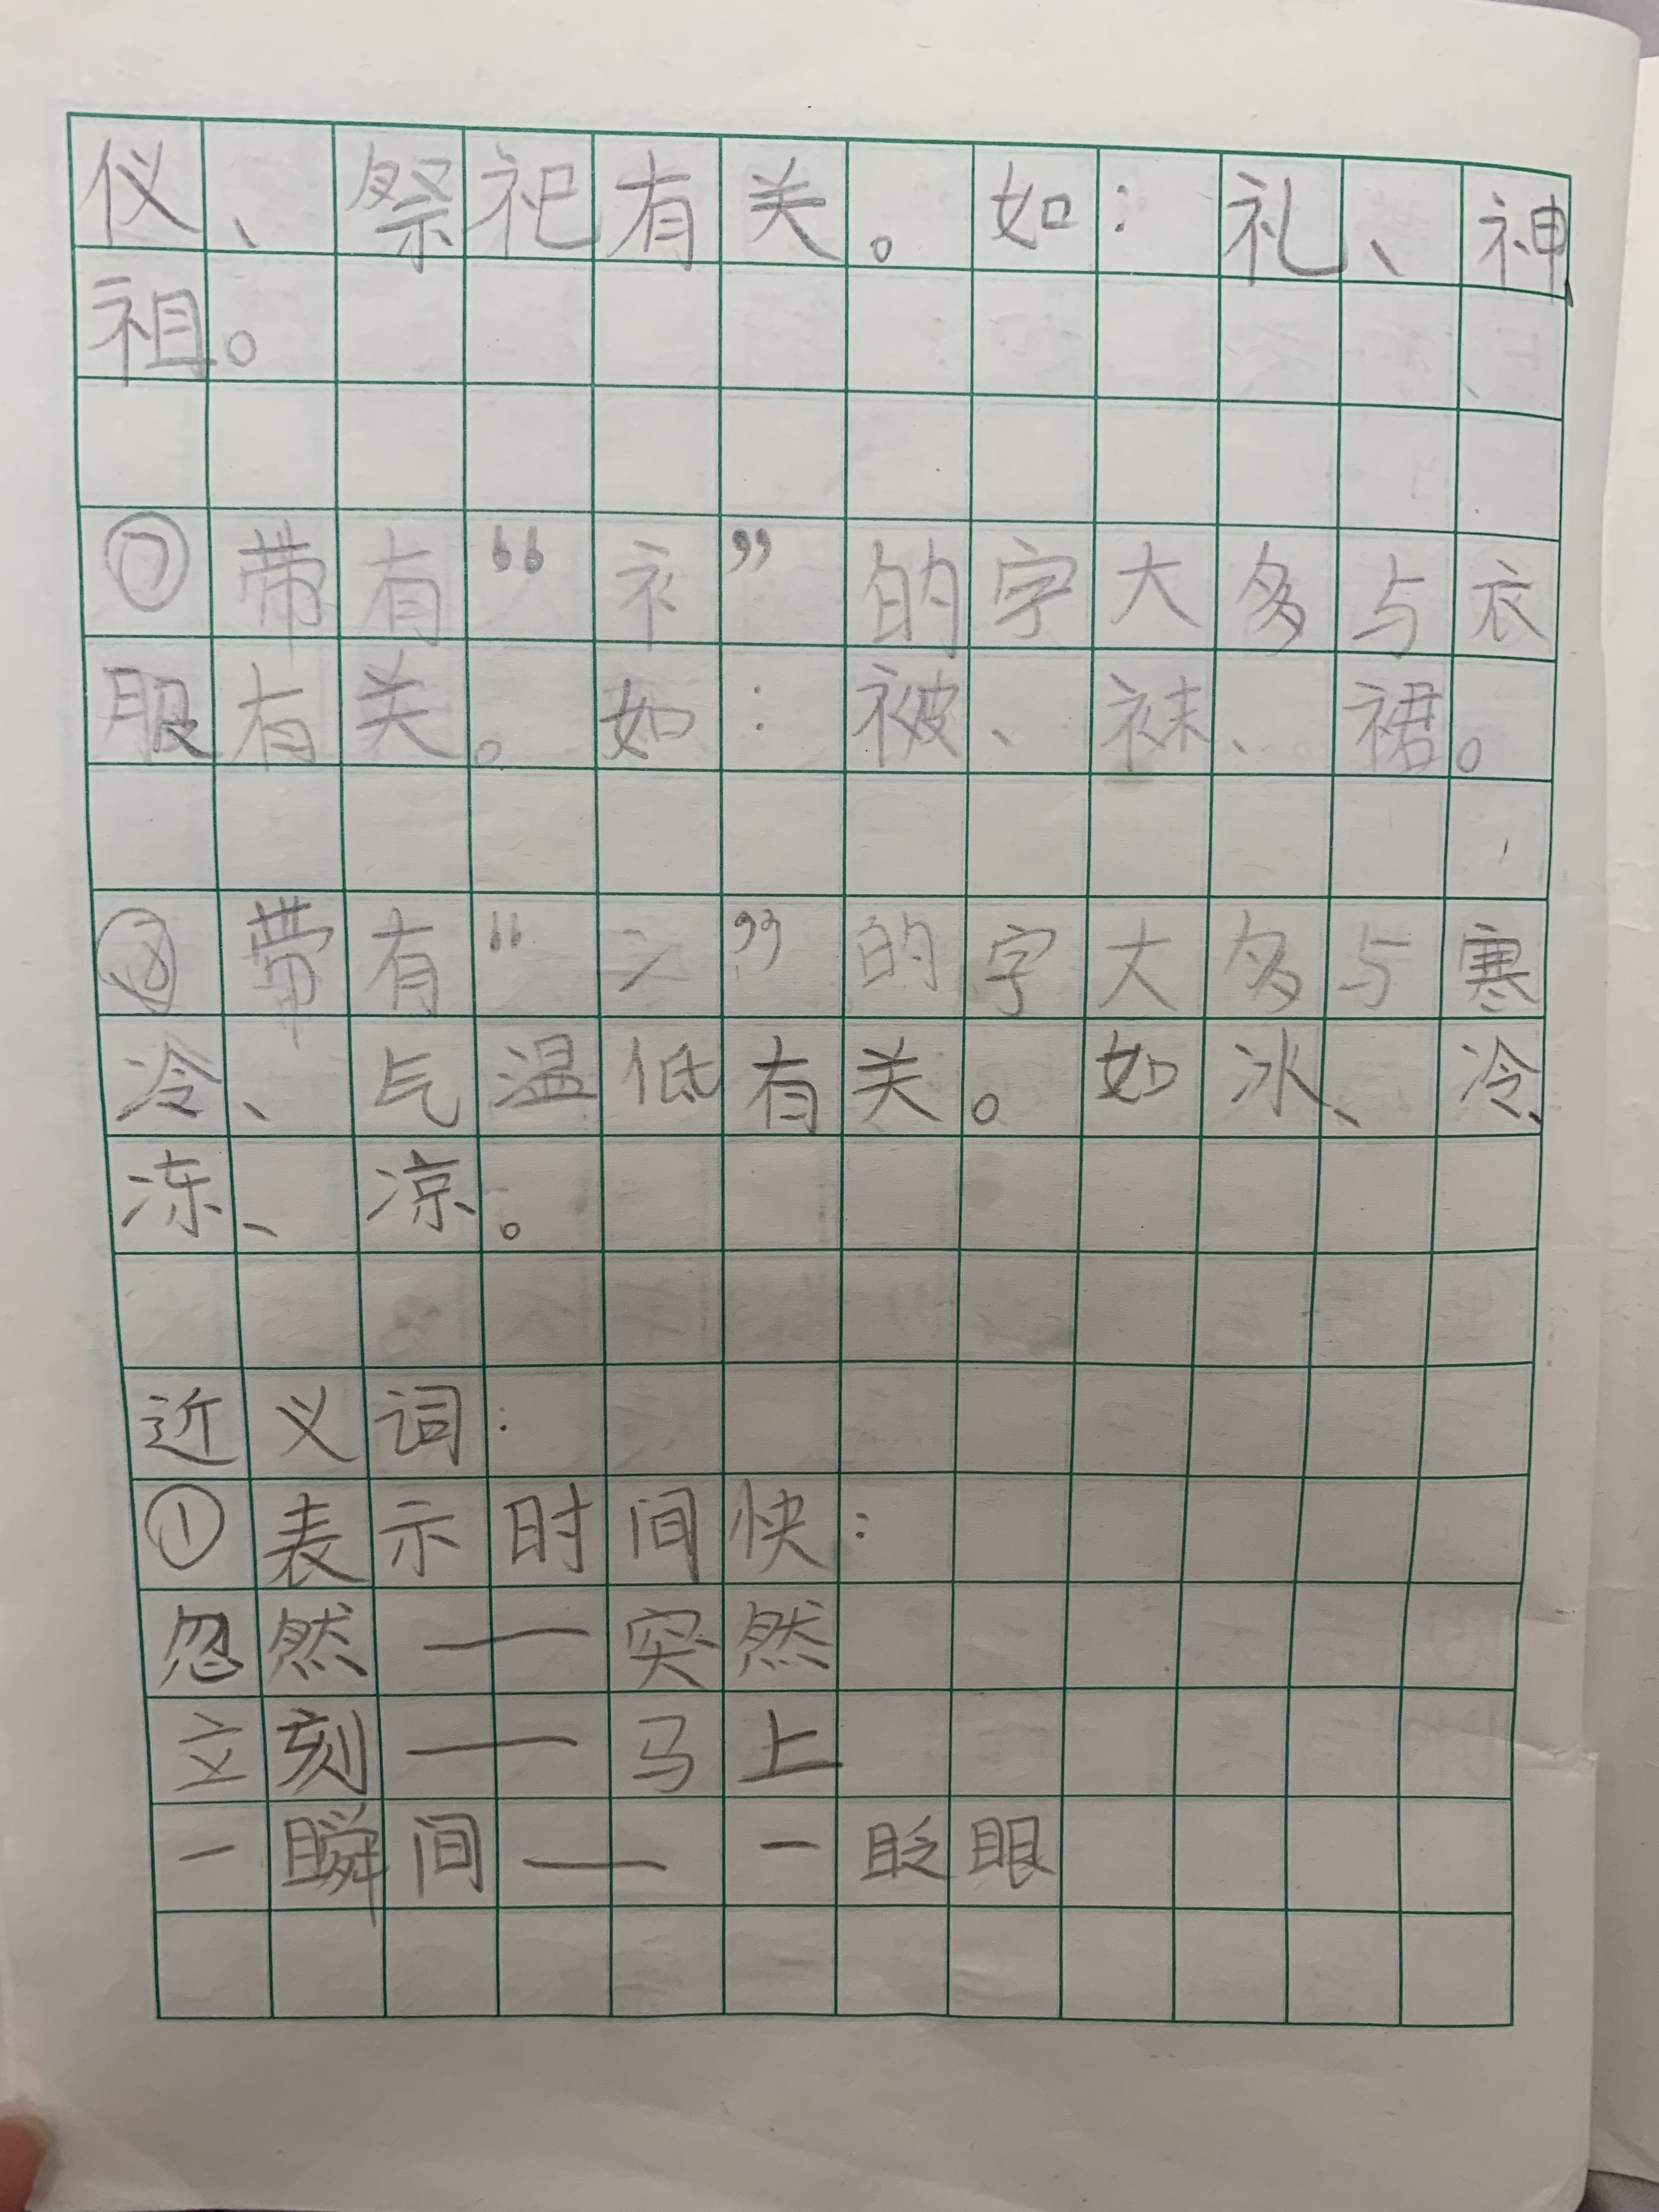 仪、祭祀有关。如：礼、神、
祖。
⑦带有“衤”的字大多与衣
服有关。如：被、袜、裙。
⑧带有“冫”的字大多与寒
冷、气温低有关。如冰、冷、
冻、凉。
近义词：
①表示时间快：
忽然——突然
立刻——马上
一瞬间——一眨眼